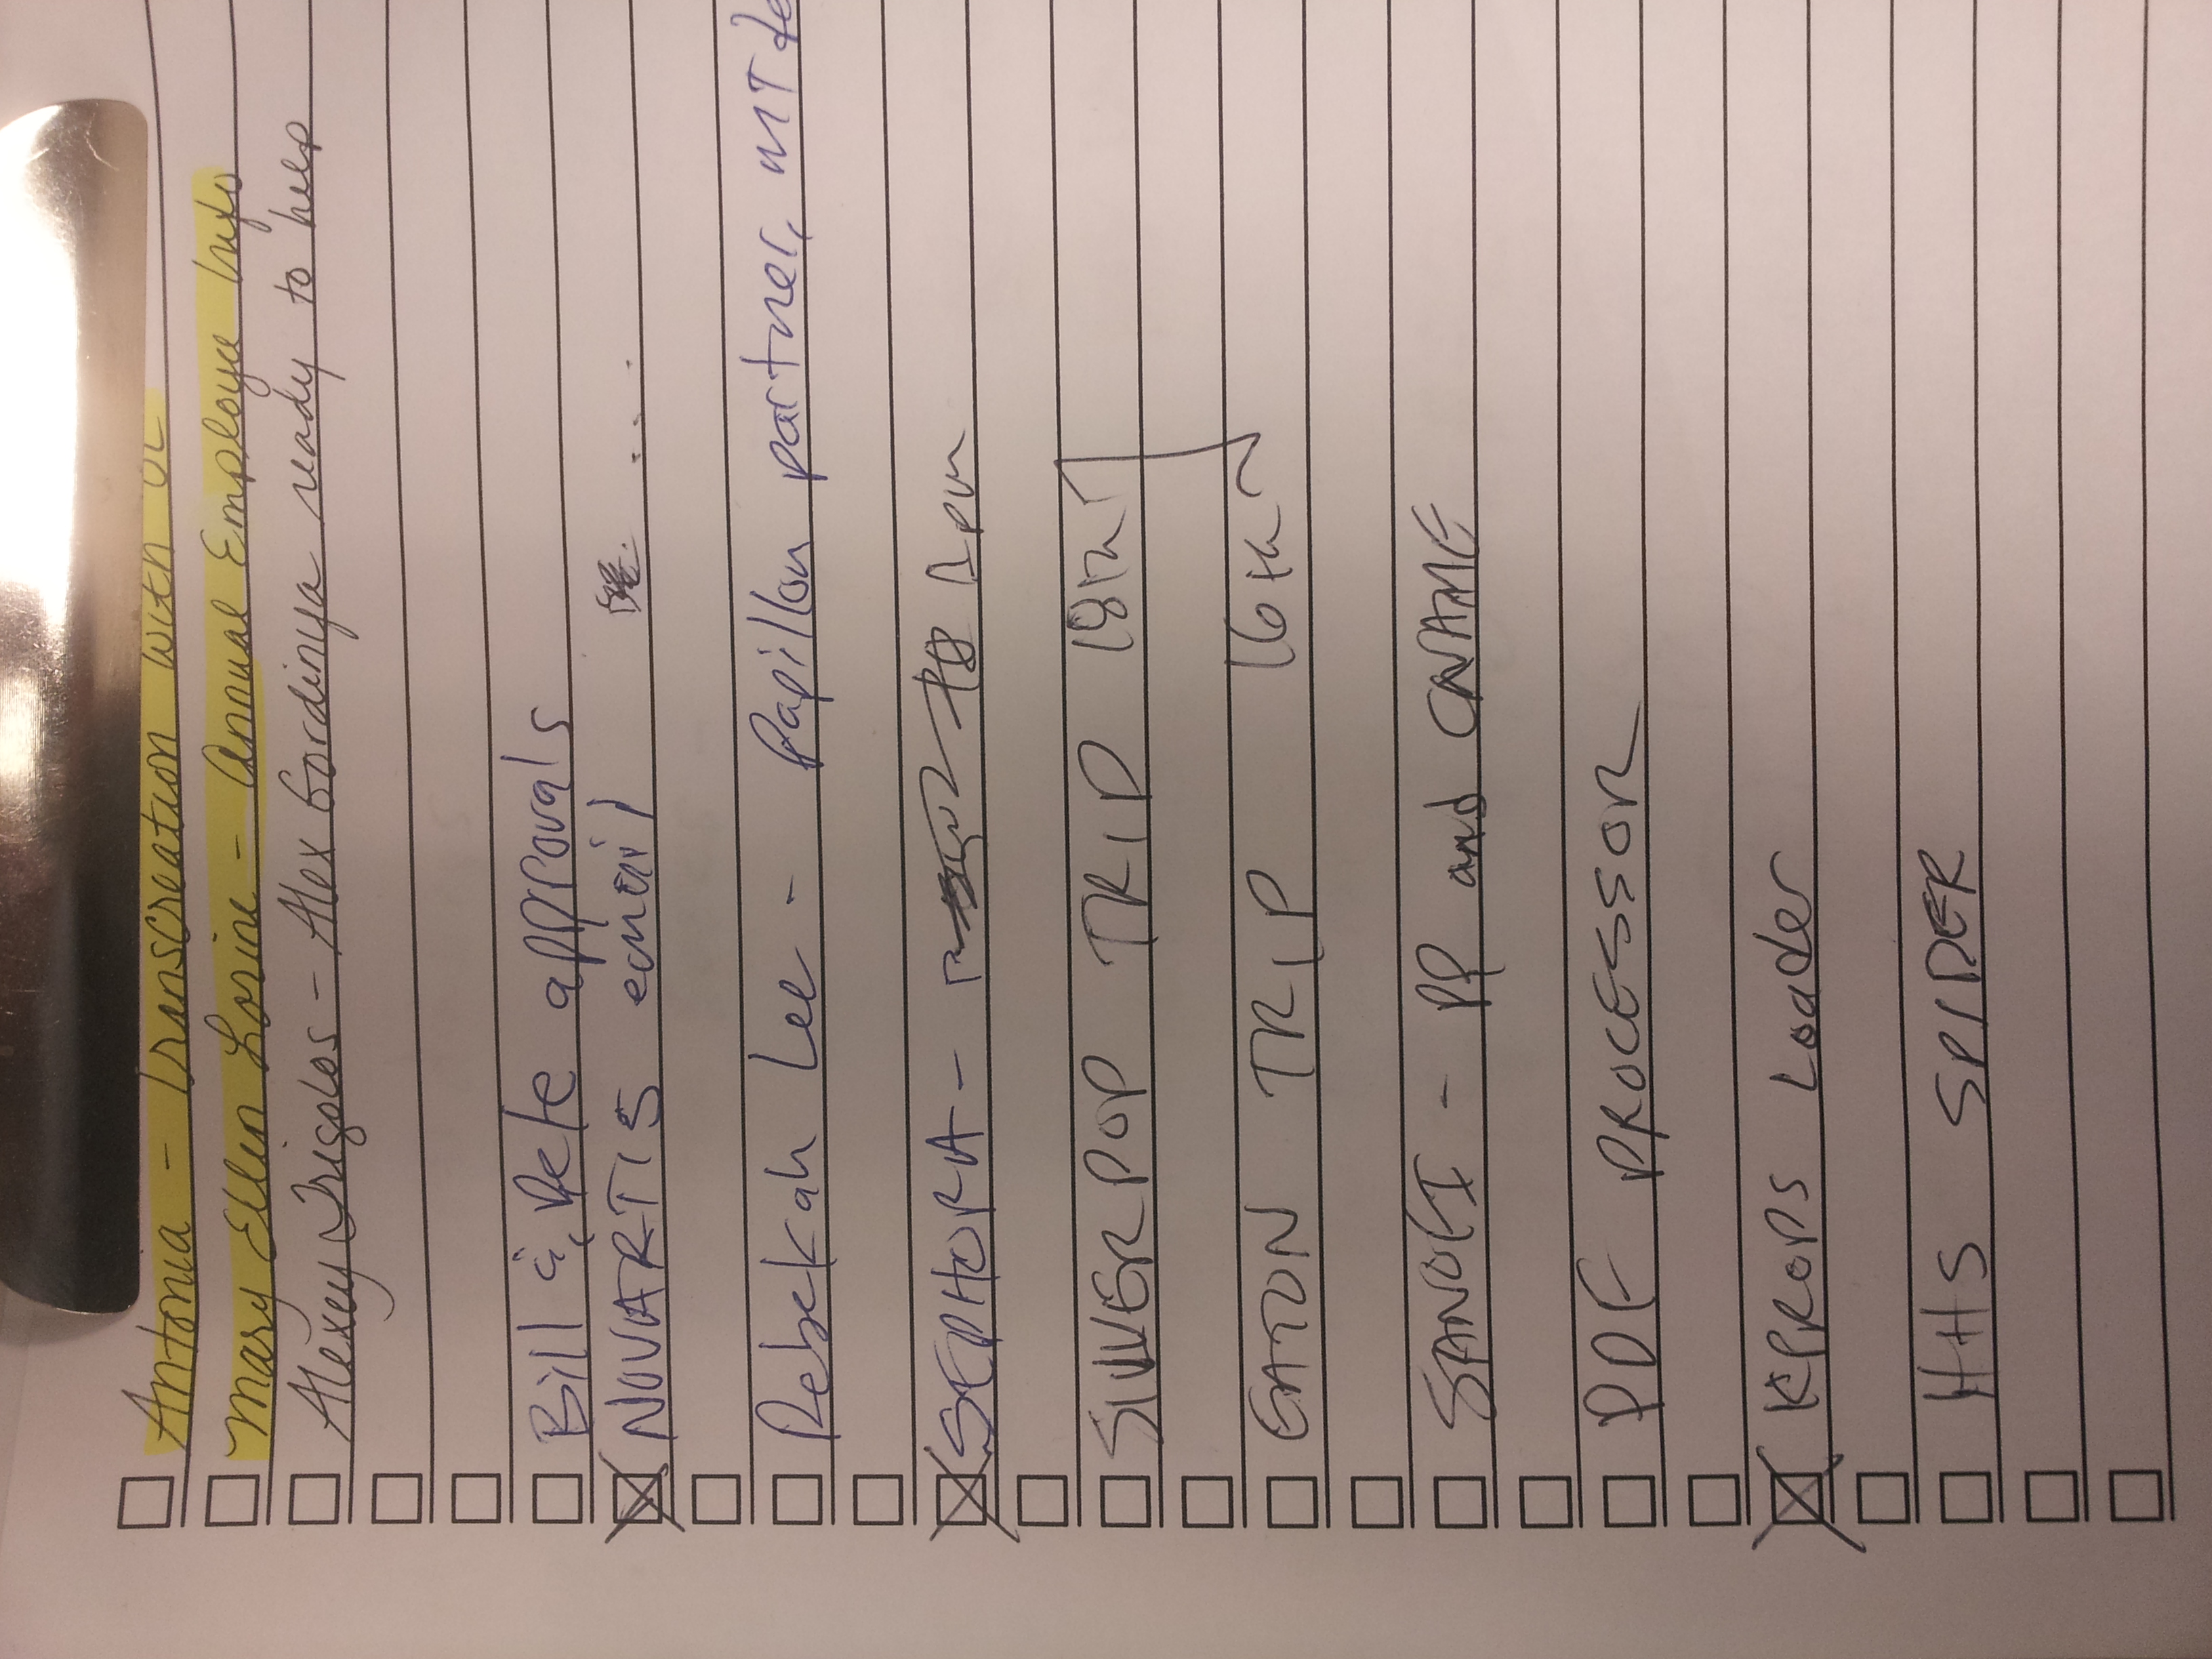 Antonia - Transcreation with
Mary Ellen Lorine - Annual Employee Info
Alexey Trigolos - Alex Bordinya ready to help
Bill & Pete approvals
NOVARTIS email
Rebekah Lee - Papillon partner, MT
SEPHORA -
SILVERPOP TRIP 18th
EATON TRIP 16th
SANOFI - PP and CNAME
PDF PROCESSOR
KPROPS Loader
HHS SPIDER